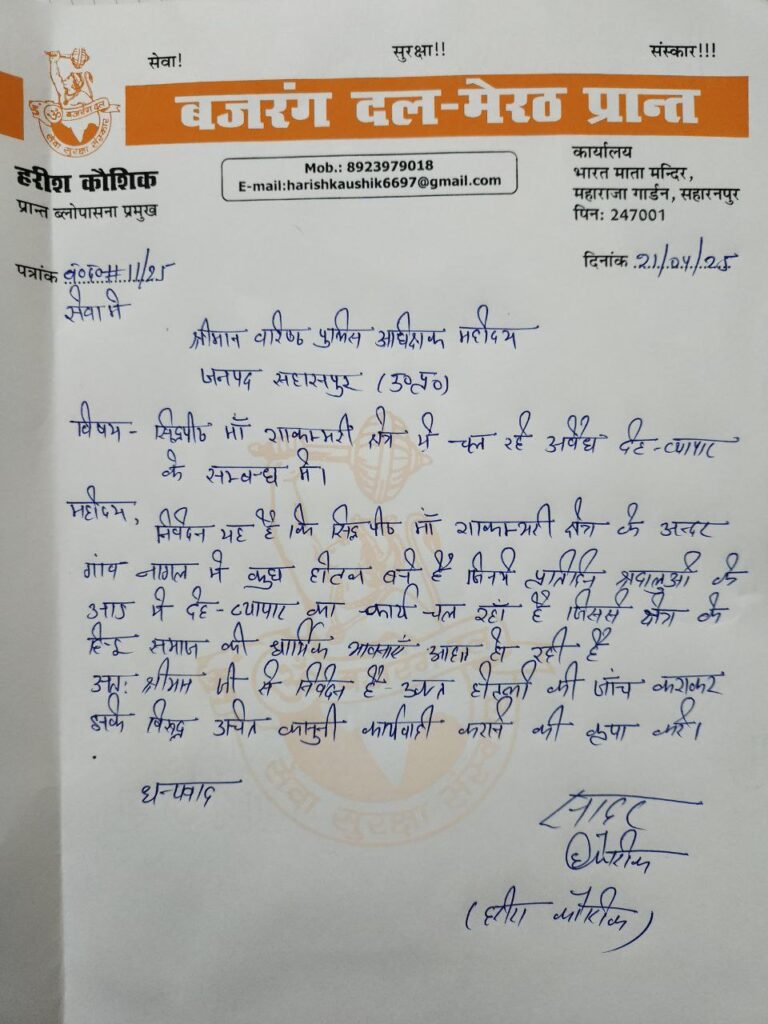 सेवा! सुरक्षा!! संस्कार!!!
बजरंग दल-मेरठ प्रान्त
बजरंग दल
सेवा सुरक्षा संस्कार
हरीश कौशिक
प्रान्त ब्लोपासना प्रमुख
Mob.: 8923979018
E-mail:harishkaushik6697@gmail.com
कार्यालय
भारत माता मन्दिर,
महाराजा गार्डन, सहारनपुर
पिन: 247001
पत्रांक ब०द०#11/25
दिनांक 21/04/25
सेवा में
श्रीमान वरिष्ठ पुलिस अधिक्षक महोदय
जनपद सहारनपुर (उ०प्र०)
विषय - सिद्धपीठ माँ शाकम्भरी क्षेत्र में चल रहे अवैध देह-व्यापार
के सम्बन्ध में।
महोदय,
निवेदन यह है कि सिद्धपीठ माँ शाकम्भरी क्षेत्र के अन्दर
गांव नागल में कुछ होटल बने हैं जिनमें प्रतिदिन श्रदालुओ के
आड में देह-व्यापार का कार्य चल रहा है जिससे क्षेत्र के
हिन्दू समाज की धार्मिक भावनाएँ आहत हो रही है
अतः श्रीमान जी से निवेदन है उक्त होटलो की जाँच कराकर
इनके विरुद्ध उचित कानुनी कार्यवाही कराने की कृपा करे।
धन्यवाद
सादर
(हरीश कौशिक)
सेवा सुरक्षा संस्कार